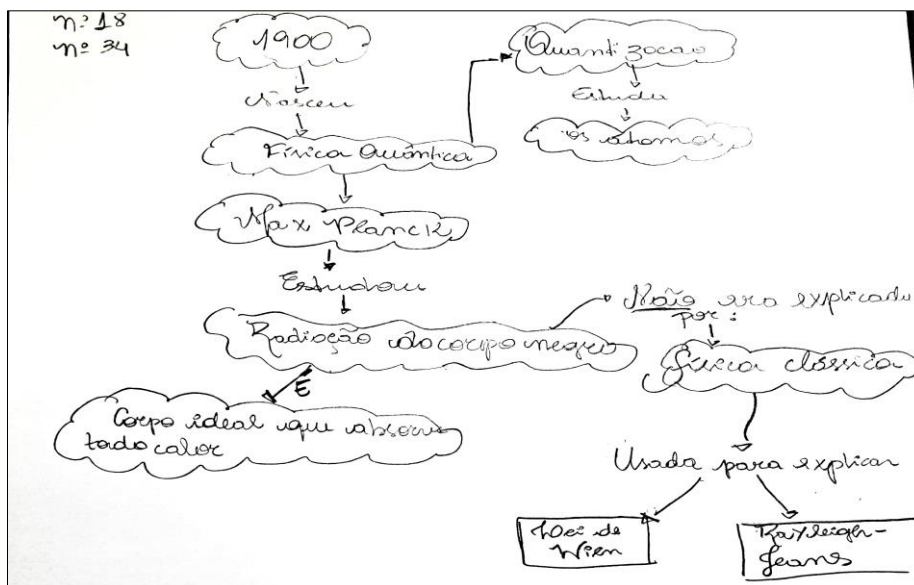 nº 18
nº 34
1900
Nasceu
Física Quântica
Quantização
Estuda
os átomos
Max Planck
Estudou
Radiação do corpo negro
É
Corpo ideal que absorve
todo calor
Não era explicada
por:
física clássica
Usada para explicar
Lei de
Wien
Rayleigh-
Jeans